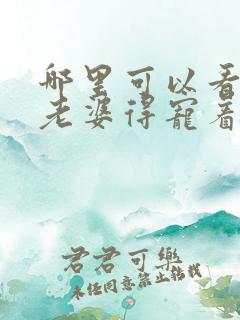 哪里可以看
老婆得宠着
君君可乐
未经同意禁止转载